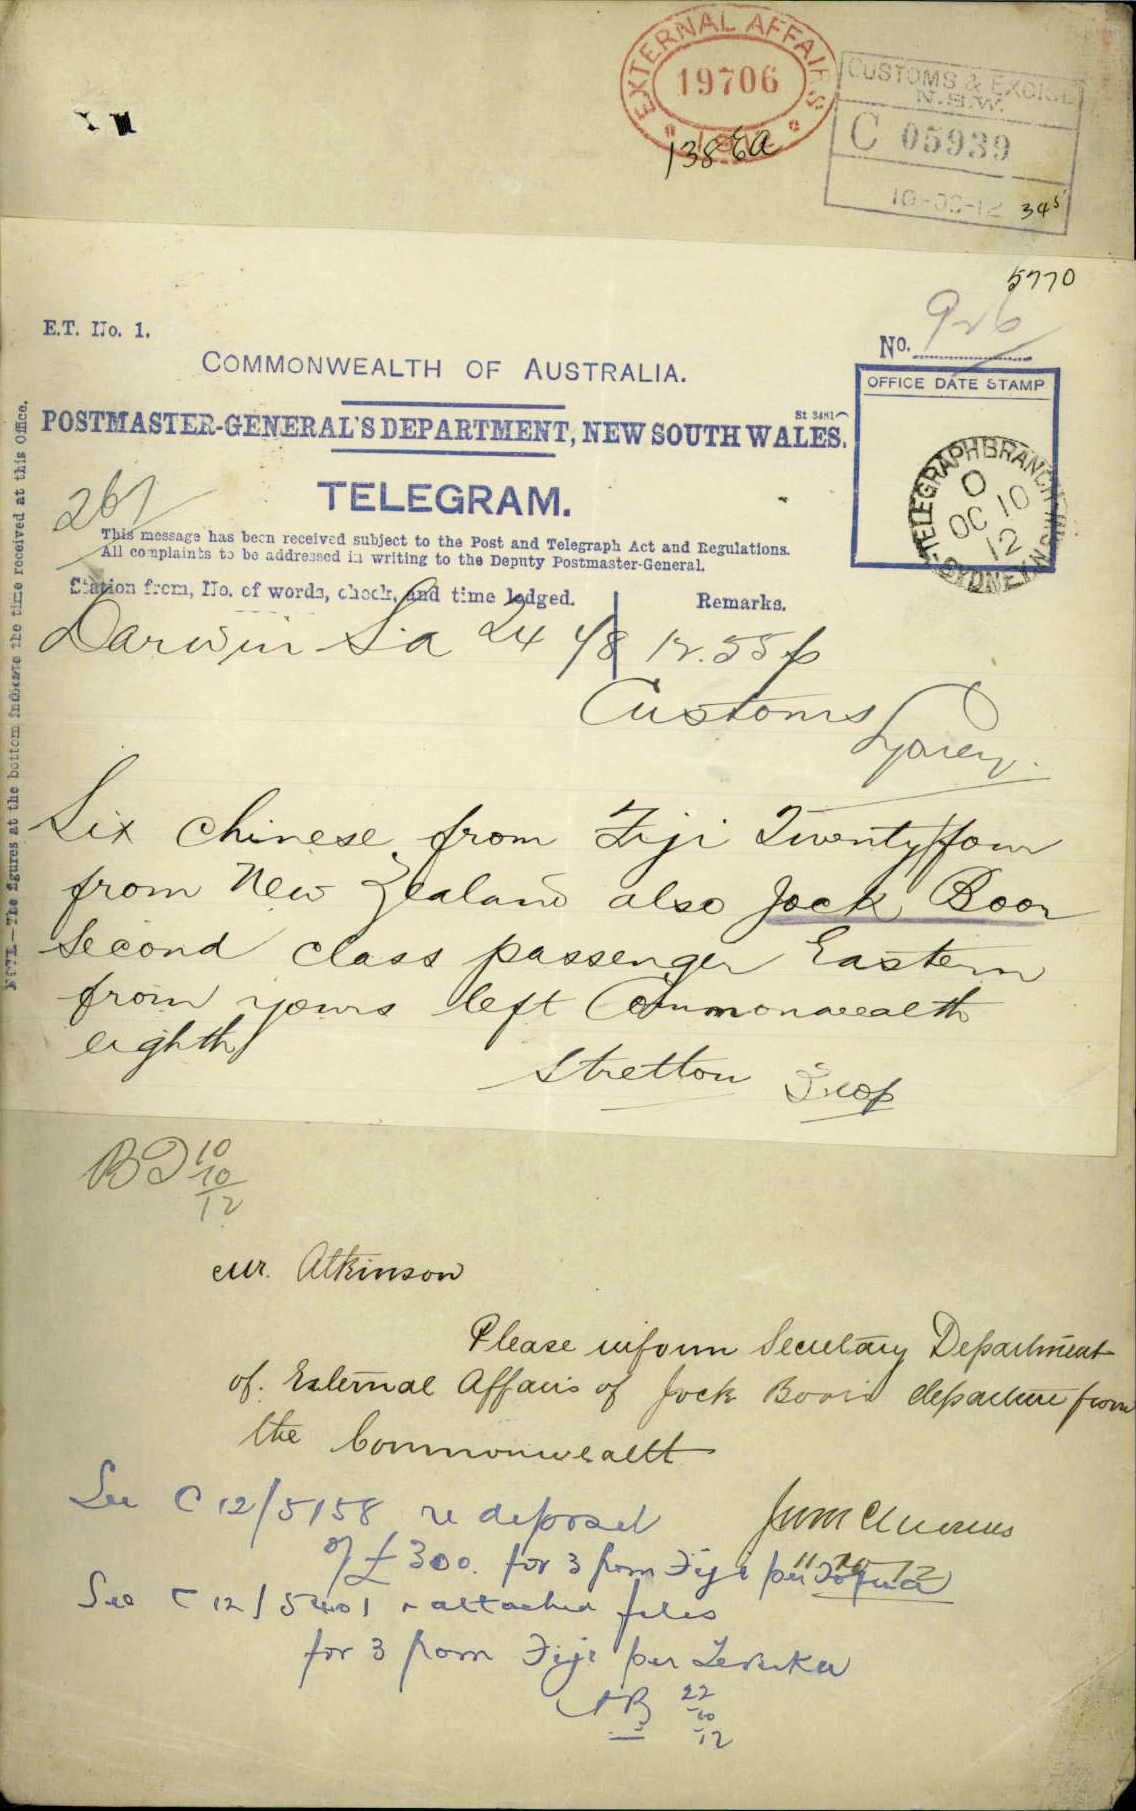 EXTERNAL AFFAIRS
19706
138 Ea
CUSTOMS & EXCISE
N.S.W.
C 05939
10-12 345
5770
926
No.
E.T. No. 1.
COMMONWEALTH OF AUSTRALIA.
OFFICE DATE STAMP
St 3481
POSTMASTER-GENERAL'S DEPARTMENT, NEW SOUTH WALES.
TELEGRAPH BRANCH
O
OC 10
12
SYDNEY N
TELEGRAM.
267
This message has been received subject to the Post and Telegraph Act and Regulations.
All complaints to be addressed in writing to the Deputy Postmaster-General.
Station from, No. of words, check, and time lodged. Remarks.
Darwin Sa 24 4/8 12.55 p
Customs
Sydney.
NOTE.—The figures at the bottom indicate the time received at this Office.
Six Chinese from Fiji Twenty four
from New Zealand also Jock Boor
second class passenger Eastern
from yours left Commonwealth
eighth
Stretton
BD 10
10
12
Mr. Atkinson
Please inform Secretary Department
of External Affairs of Jock Boor's departure from
the Commonwealth
See C 12/5158 re deposit
11 10 12
of £300. for 3 from Fiji per Tofua
See C 12/5401 attached files
for 3 from Fiji per Levuka
AB 22
10
12